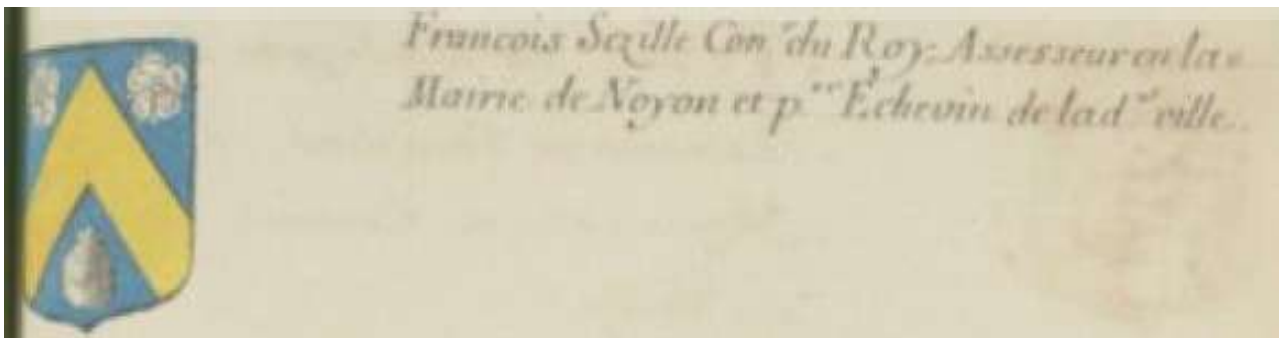 Francois Sezille Con.^r du Roy, Assesseur en la
Mairie de Noyon et p.^er Echevin de lad.^e ville.